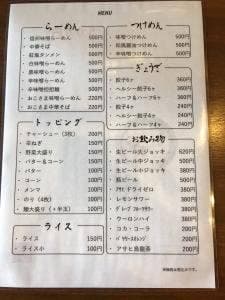 MENU
らーめん
信州味噌らーめん 500円
中華そば 500円
タンメン 500円
白味噌らーめん 500円
黒味噌らーめん 500円
辛味噌らーめん 500円
辛味噌担担麺 500円
おこさま味噌らーめん 220円
おこさま中華そば 220円
トッピング
チャーシュー(3枚) 200円
辛ねぎ 150円
野菜大盛り 150円
バター&コーン 150円
バター 100円
コーン 100円
メンマ 100円
のり(4枚) 100円
麺大盛り(+半玉) 100円
ライス
ライス 150円
ライス小 100円
つけめん
味噌つけめん 500円
和風醤油つけめん 500円
辛味噌つけめん 500円
ぎょうざ
餃子6ヶ 360円
ヘルシー餃子6ヶ 360円
ハーフ&ハーフ6ヶ 360円
餃子4ヶ 240円
ヘルシー餃子4ヶ 240円
ハーフ&ハーフ4ヶ 240円
お飲み物
生ビール大ジョッキ 620円
生ビール中ジョッキ
生ビール小ジョッキ
瓶ビール
アサヒ ドライゼロ
レモンサワー
グレープフルーツサワー
ウーロンハイ
コカ・コーラ 200円
オレンジ 200円
アサヒ烏龍茶 200円